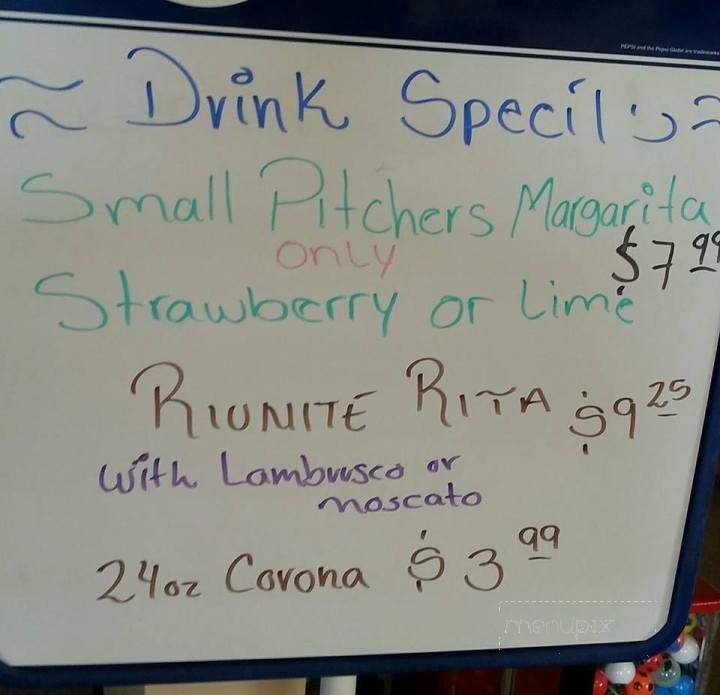 PEPSI and the Pepsi Globe are trademarks
≈ Drink Specil :) ≈
Small Pitchers Margarita
only $7 99
Strawberry or Lime
RIUNITE RITA $9 25
with Lambrusco or
moscato
24oz Corona $3 99
menupix